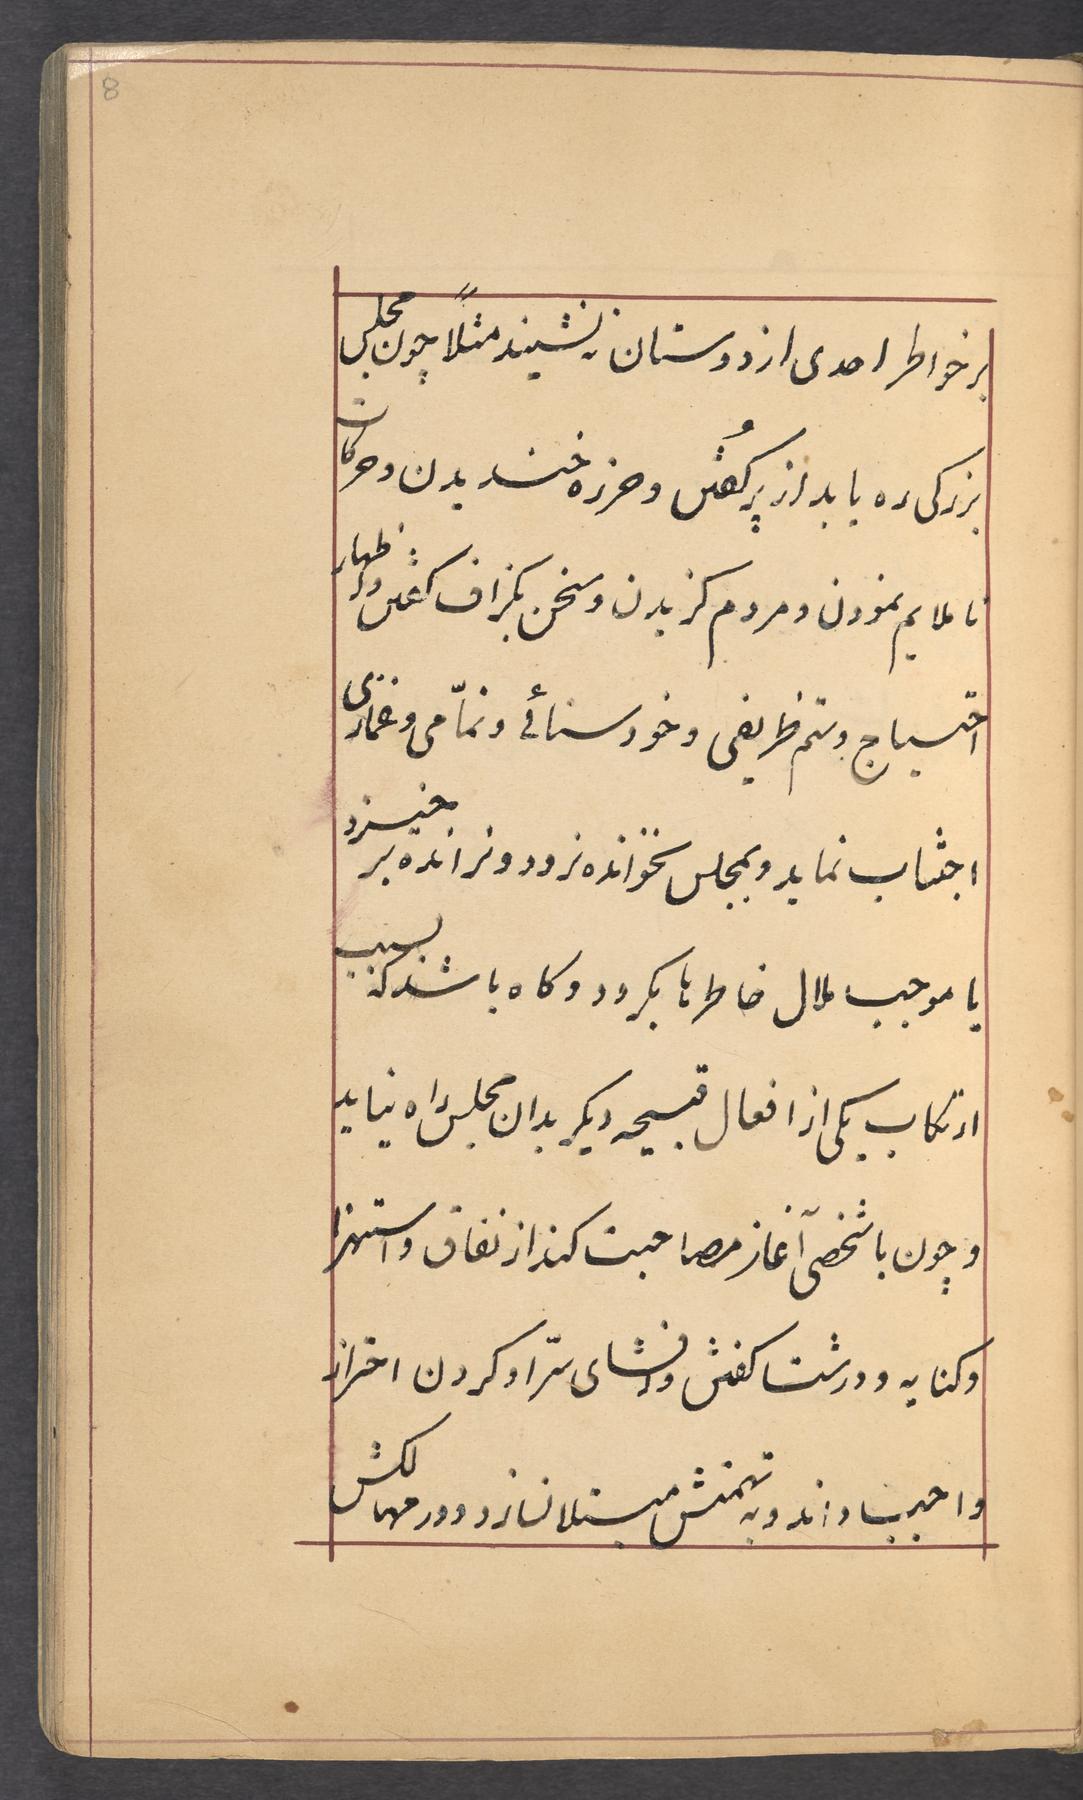 8
بر خواطر احدی از دوستان ننشیند مثلاً چون مجلس
بزرکی ره یابد از پر کُفتن و هرزه خندیدن و حرکات
ناملایم نمودن و مردم کزیدن و سخن بکزاف کفتن و اظهار
احتیاج و ستم ظریفی و خودستائی و نمّامی و غمازی
اجتناب نماید و بمجلس نخوانده نرود و نرانده بر خیزد
یا موجب ملال خاطرها نکردد و کاه باشد که بسبب
ارتکاب یکی از افعال قبیحه دیکر بدان مجلس راه نیابد
و چون با شخصی آغاز مصاحبت کند از نفاق و استهزا
و کنایه و درشت کفتن و افشای سرّ او کردن احتراز
واجب داند و به تهمتش مبتلا نسازد و در مهالکش